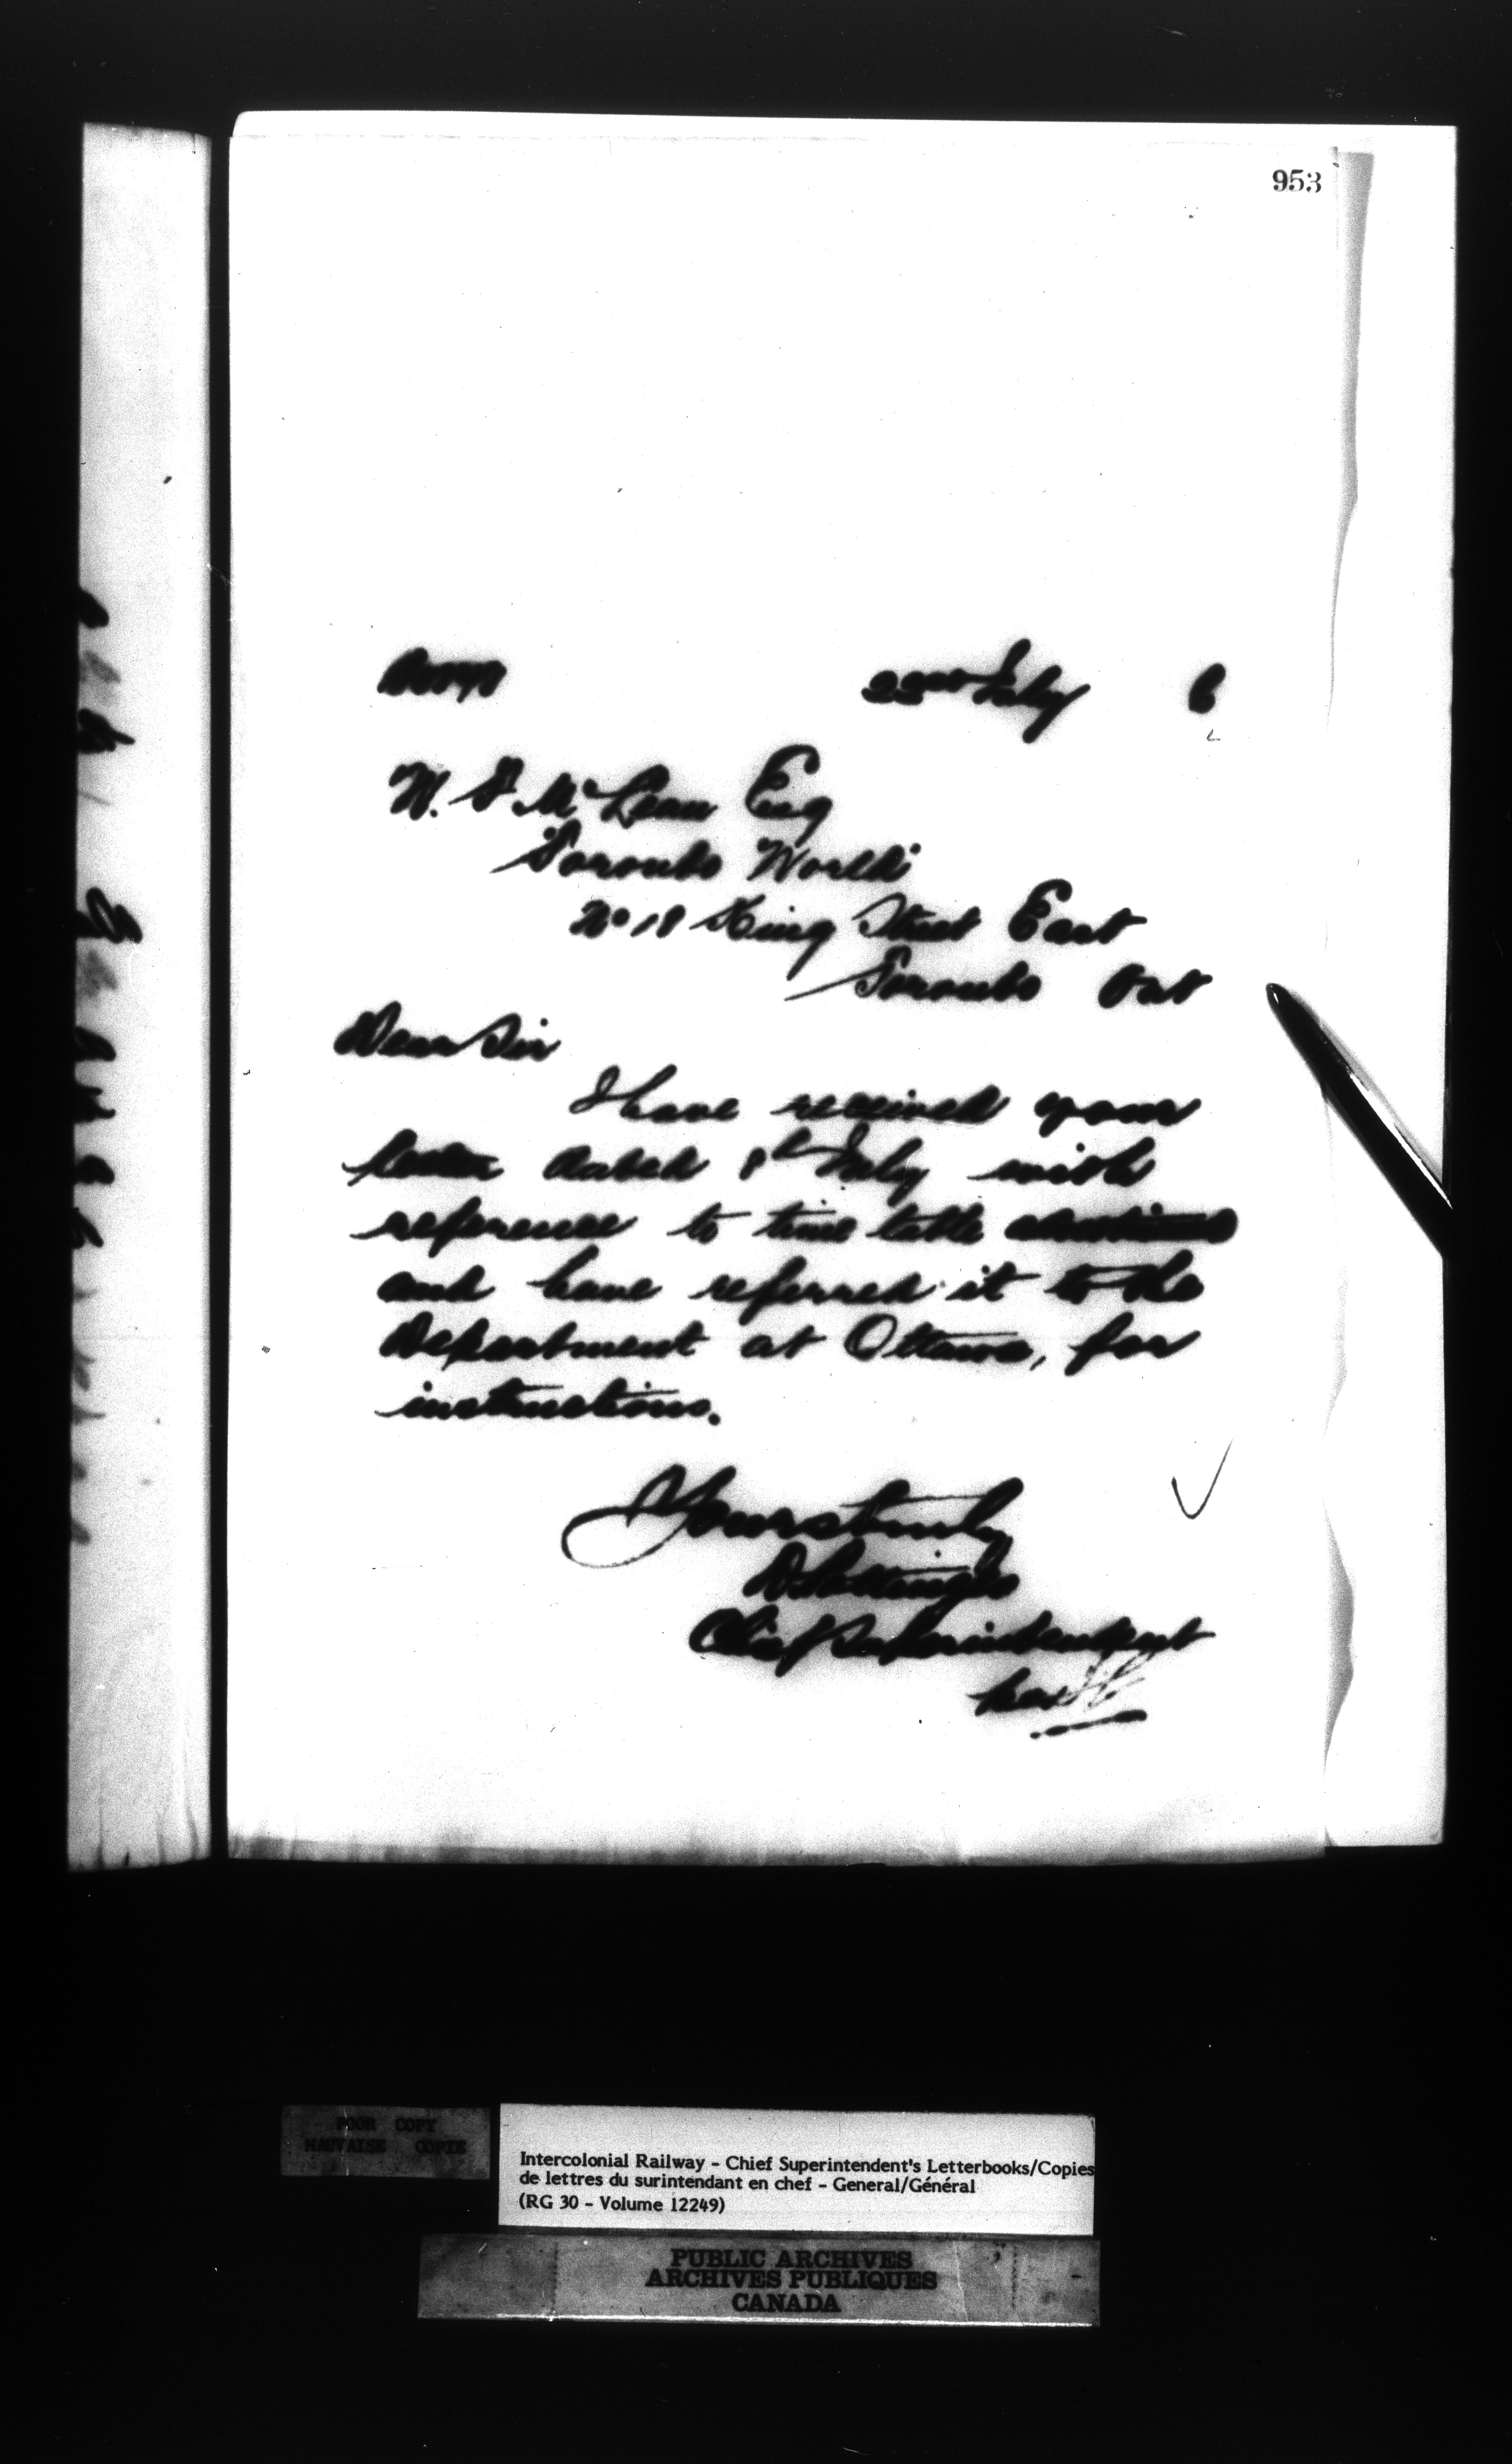 953
22nd July 6
W. F McLean Esq
Toronto World
No 18 King Street East
Toronto Ont
Dear Sir
I have received your
letter dated 8th July with
reference to time table
and have referred it to the
Department at Ottawa, for
instructions.
Yours truly
D Pottinger
Chief Superintendent
POOR COPY
MAUVAISE COPIE
Intercolonial Railway - Chief Superintendent's Letterbooks/Copies
de lettres du surintendant en chef - General/Général
(RG 30 - Volume 12249)
PUBLIC ARCHIVES
ARCHIVES PUBLIQUES
CANADA